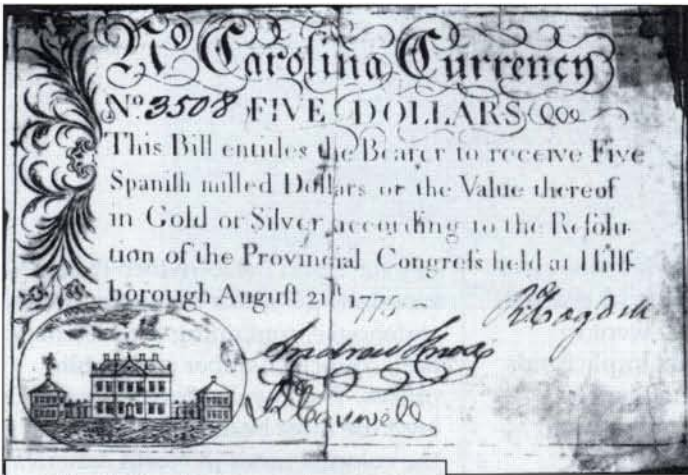 No Carolina Currency
No. 3508 FIVE DOLLARS
This Bill entitles the Bearer to receive Five
Spaniſh milled Dollars or the Value thereof
in Gold or Silver according to the Reſolu-
tion of the Provincial Congreſs held at Hillſ-
borough Auguſt 21ſt 1775
RCogdell
Andrew Knox
RCaswell